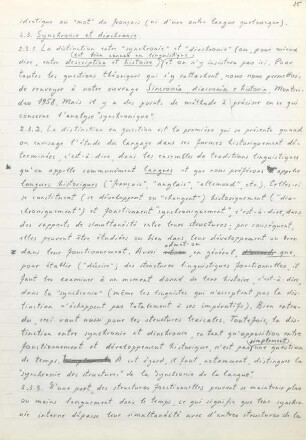 25
identique au "mot" du français (ni d'une autre langue quelconque).
2.3. Synchronie et diachronie
2.3.1. La distinction entre "synchronie" et "diachronie" (ou, pour mieux
(est bien connue en linguistique)
dire, entre description et histoire) et on n'y insistera pas ici. Pour
toutes les questions théoriques qui s'y rattachent, nous nous permettons
de renvoyer à notre ouvrage Sincronía, diacronía e historia, Montevi-
deo 1958. Mais il y a des points de méthode à préciser en ce qui
concerne l'analyse synchronique.
2.3.2. La distinction en question est la première qui se présente quand
on envisage l'étude du langage dans ses formes historiquement dé-
terminées, c'est-à-dire, dans les ensembles de traditions linguistiques
qu'on appelle communément langues et que nous préférons appeler
langues historiques ("français", "anglais", "allemand", etc.). Celles-ci
se constituent (se développent ou "changent") historiquement ("dia-
chroniquement") et fonctionnent "synchroniquement", c'est-à-dire, dans
des rapports de simultanéité entre leurs structures; par conséquent,
elles peuvent être étudiées ou bien dans leur développement ou bien
dans leur fonctionnement. Aussi admet-on en général que,
pour établir ("décrire") des structures linguistiques fonctionnelles, il
faut les examiner à un moment donné de leur histoire, c'est-à-dire,
dans la "synchronie" (même les linguistes qui n'acceptent pas la dis-
tinction n'échappent pas totalement à cet impératif). Bien enten-
du, ceci vaut aussi pour les structures lexicales. Toutefois, la dis-
tinction entre synchronie et diachronie, en tant qu'opposition entre
fonctionnement et développement historique, n'est pas (simplement) une question
de temps. À cet égard, il faut, notamment, distinguer la
"synchronie des structures" de la "synchronie de la langue".
2.3.3. D'une part, des structures fonctionnelles peuvent se maintenir plus
ou moins longuement dans le temps, ce qui signifie que leur synchro-
nie interne dépasse leur simultanéité avec d'autres structures de la